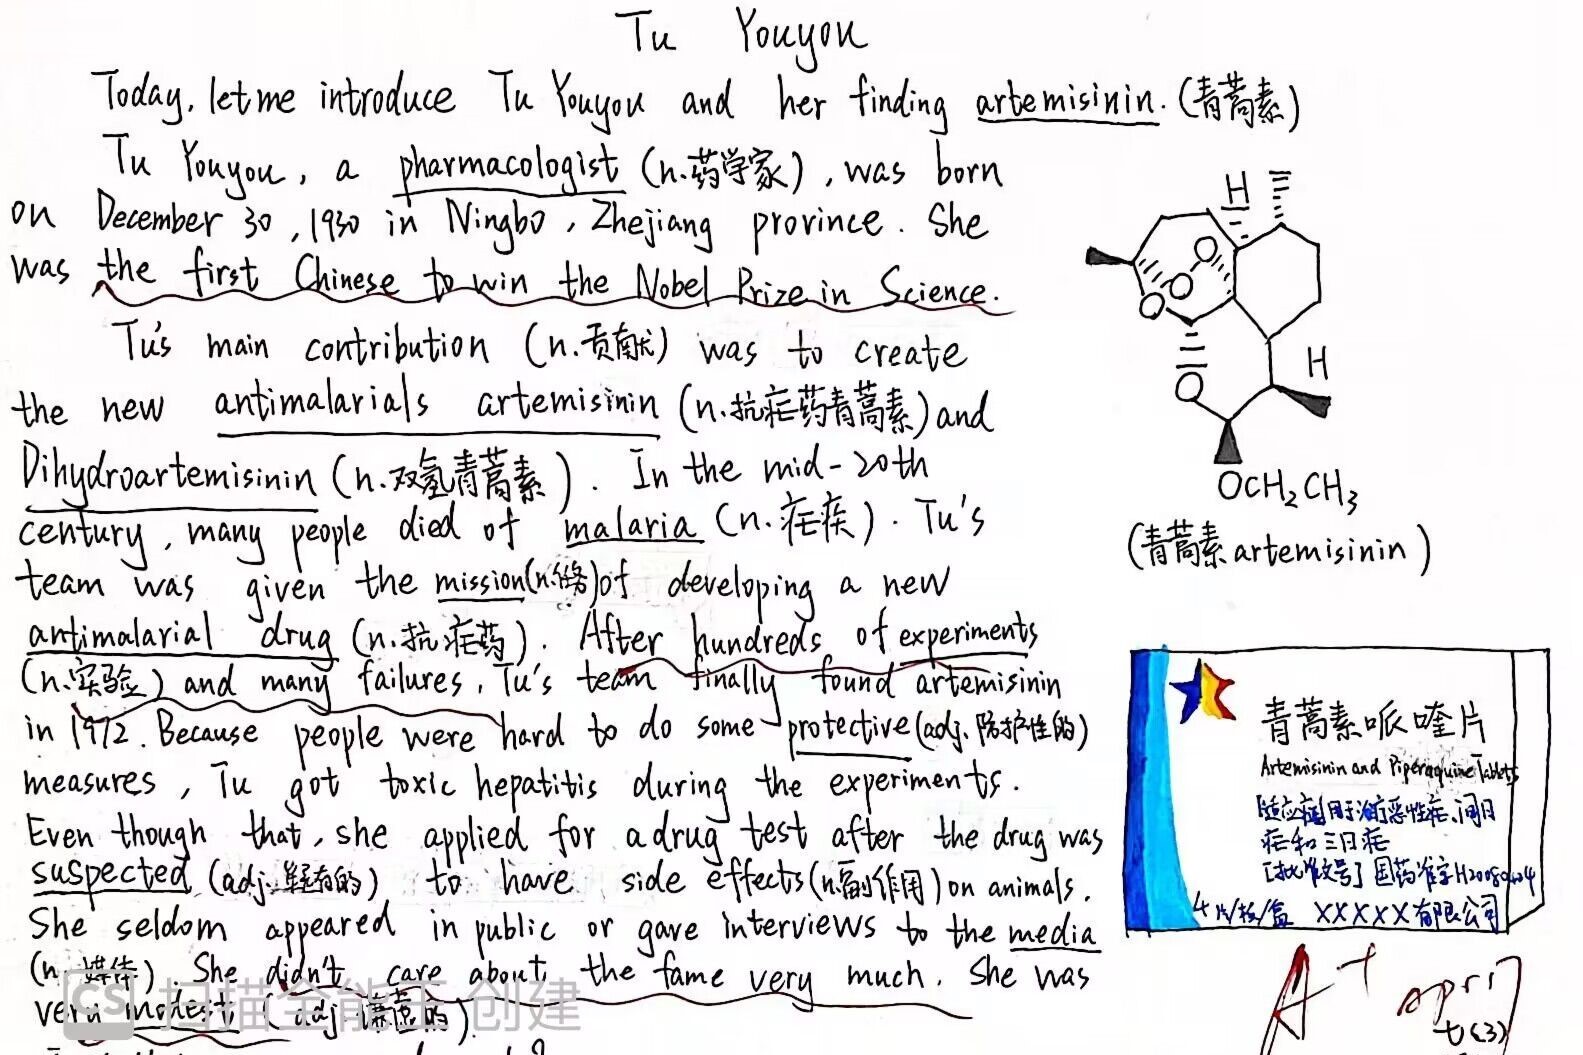 Tu Youyou
Today, let me introduce Tu Youyou and her finding artemisinin. (青蒿素)
Tu Youyou, a pharmacologist (n.药学家), was born
on December 30, 1930 in Ningbo, Zhejiang province. She
was the first Chinese to win the Nobel Prize in Science.
Tu's main contribution (n.贡献) was to create
the new antimalarials artemisinin (n.抗疟药青蒿素) and
Dihydroartemisinin (n.双氢青蒿素). In the mid-20th
century, many people died of malaria (n.疟疾). Tu's
team was given the mission(n.任务)of developing a new
antimalarial drug (n.抗疟药). After hundreds of experiments
(n.实验) and many failures, Tu's team finally found artemisinin
in 1972. Because people were hard to do some protective(adj.防护性的)
measures, Tu got toxic hepatitis during the experiments.
Even though that, she applied for a drug test after the drug was
suspected (adj. to have side effects(n.副作用) on animals.
She seldom appeared in public or gave interviews to the media
(n.媒体). She didn't care about the fame very much. She was
very modest (adj.谦虚的).
H
O
O
O
O
H
OCH2CH3
(青蒿素artemisinin)
青蒿素哌喹片
Artemisinin and Piperaquine Tablets
用于治疗恶性疟、间日
疟和三日疟
[批准文号] 国药准字H20060404
4片/板/盒 XXXXX有限公司
A+
CS 扫描全能王 创建